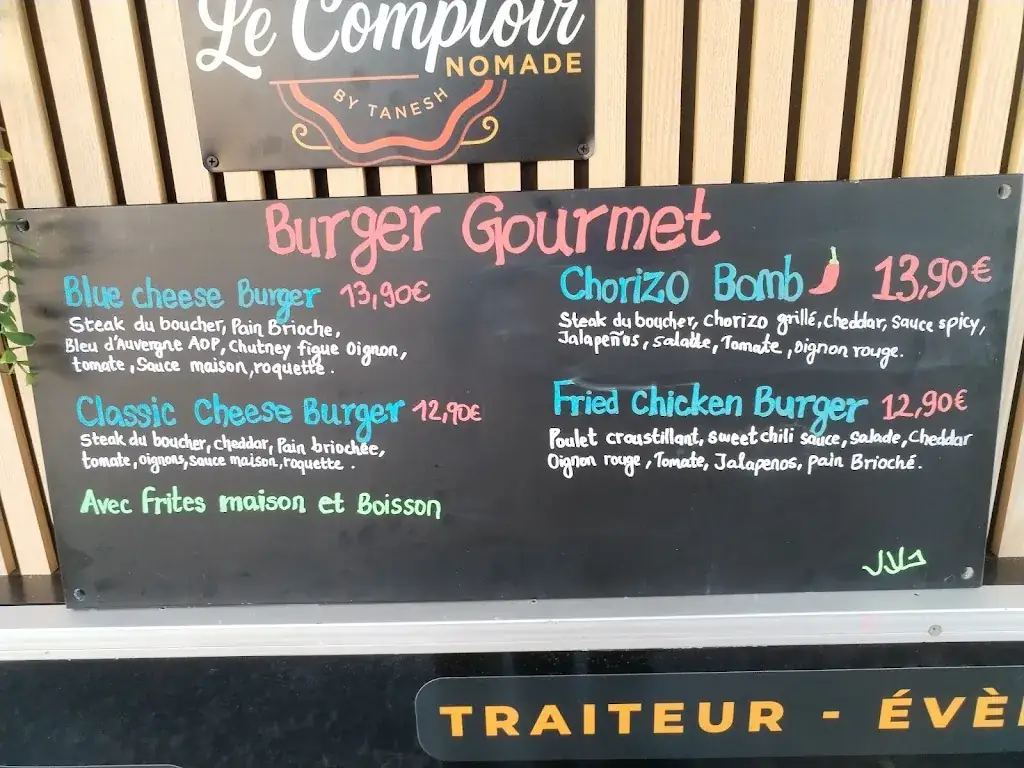 Le Comptoir
NOMADE
BY TANESH
Burger Gourmet
Blue cheese Burger 13,90€
Steak du boucher, Pain Brioche,
Bleu d'Auvergne AOP, Chutney figue Oignon,
tomate, Sauce maison, roquette.
Classic Cheese Burger 12,90€
Steak du boucher, cheddar, Pain briochée,
tomate, oignons, sauce maison, roquette.
Avec frites maison et Boisson
Chorizo Bomb 13,90€
Steak du boucher, chorizo grillé, cheddar, sauce spicy,
Jalapeños, salade, Tomate, oignon rouge.
Fried Chicken Burger 12,90€
Poulet croustillant, sweet chili sauce, salade, Cheddar
Oignon rouge, Tomate, Jalapenos, pain Brioché.
TRAITEUR - ÉVÈ